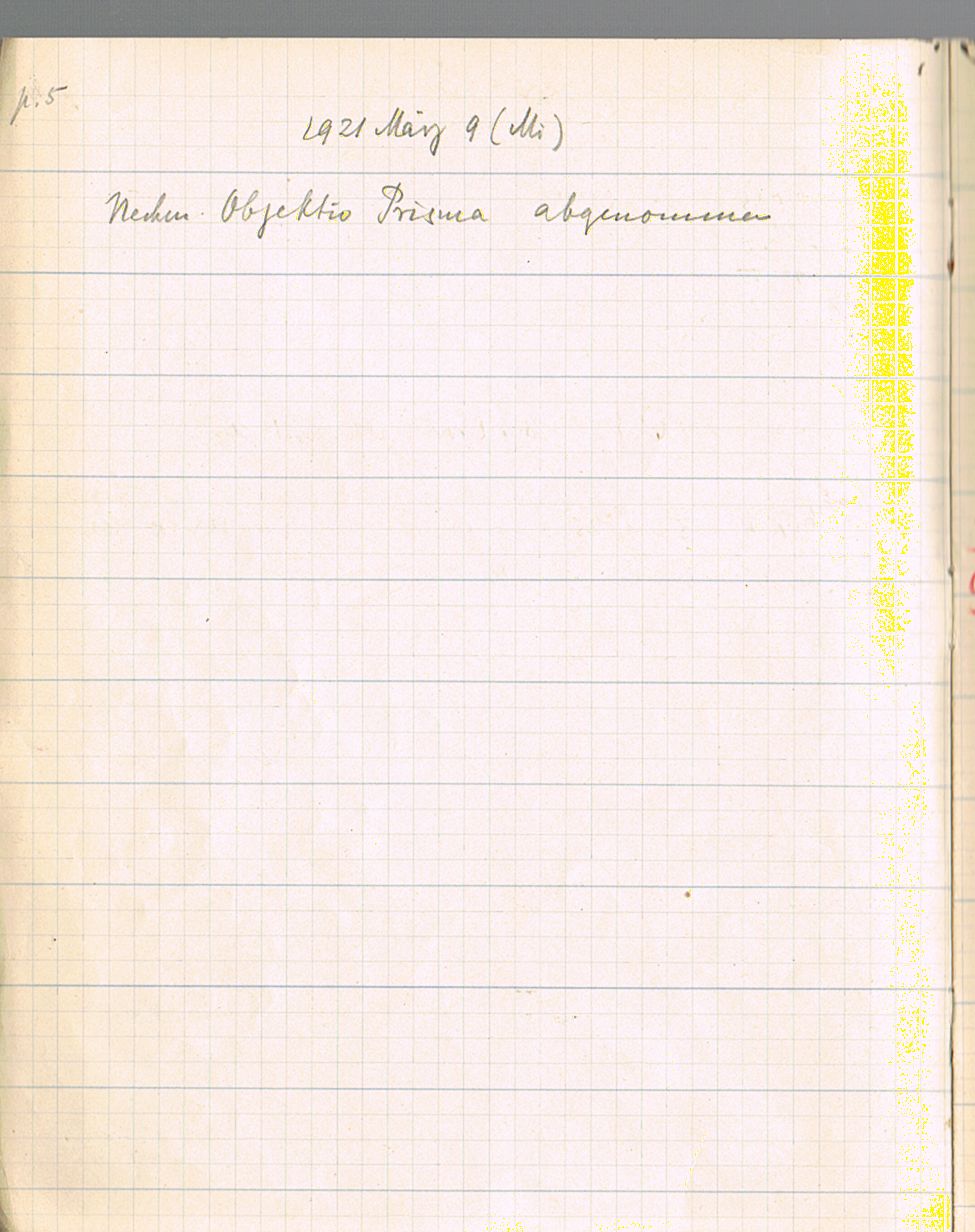 p. 5
1921 März 9 (Mi)
Nachm. Objektiv Prisma abgenommen